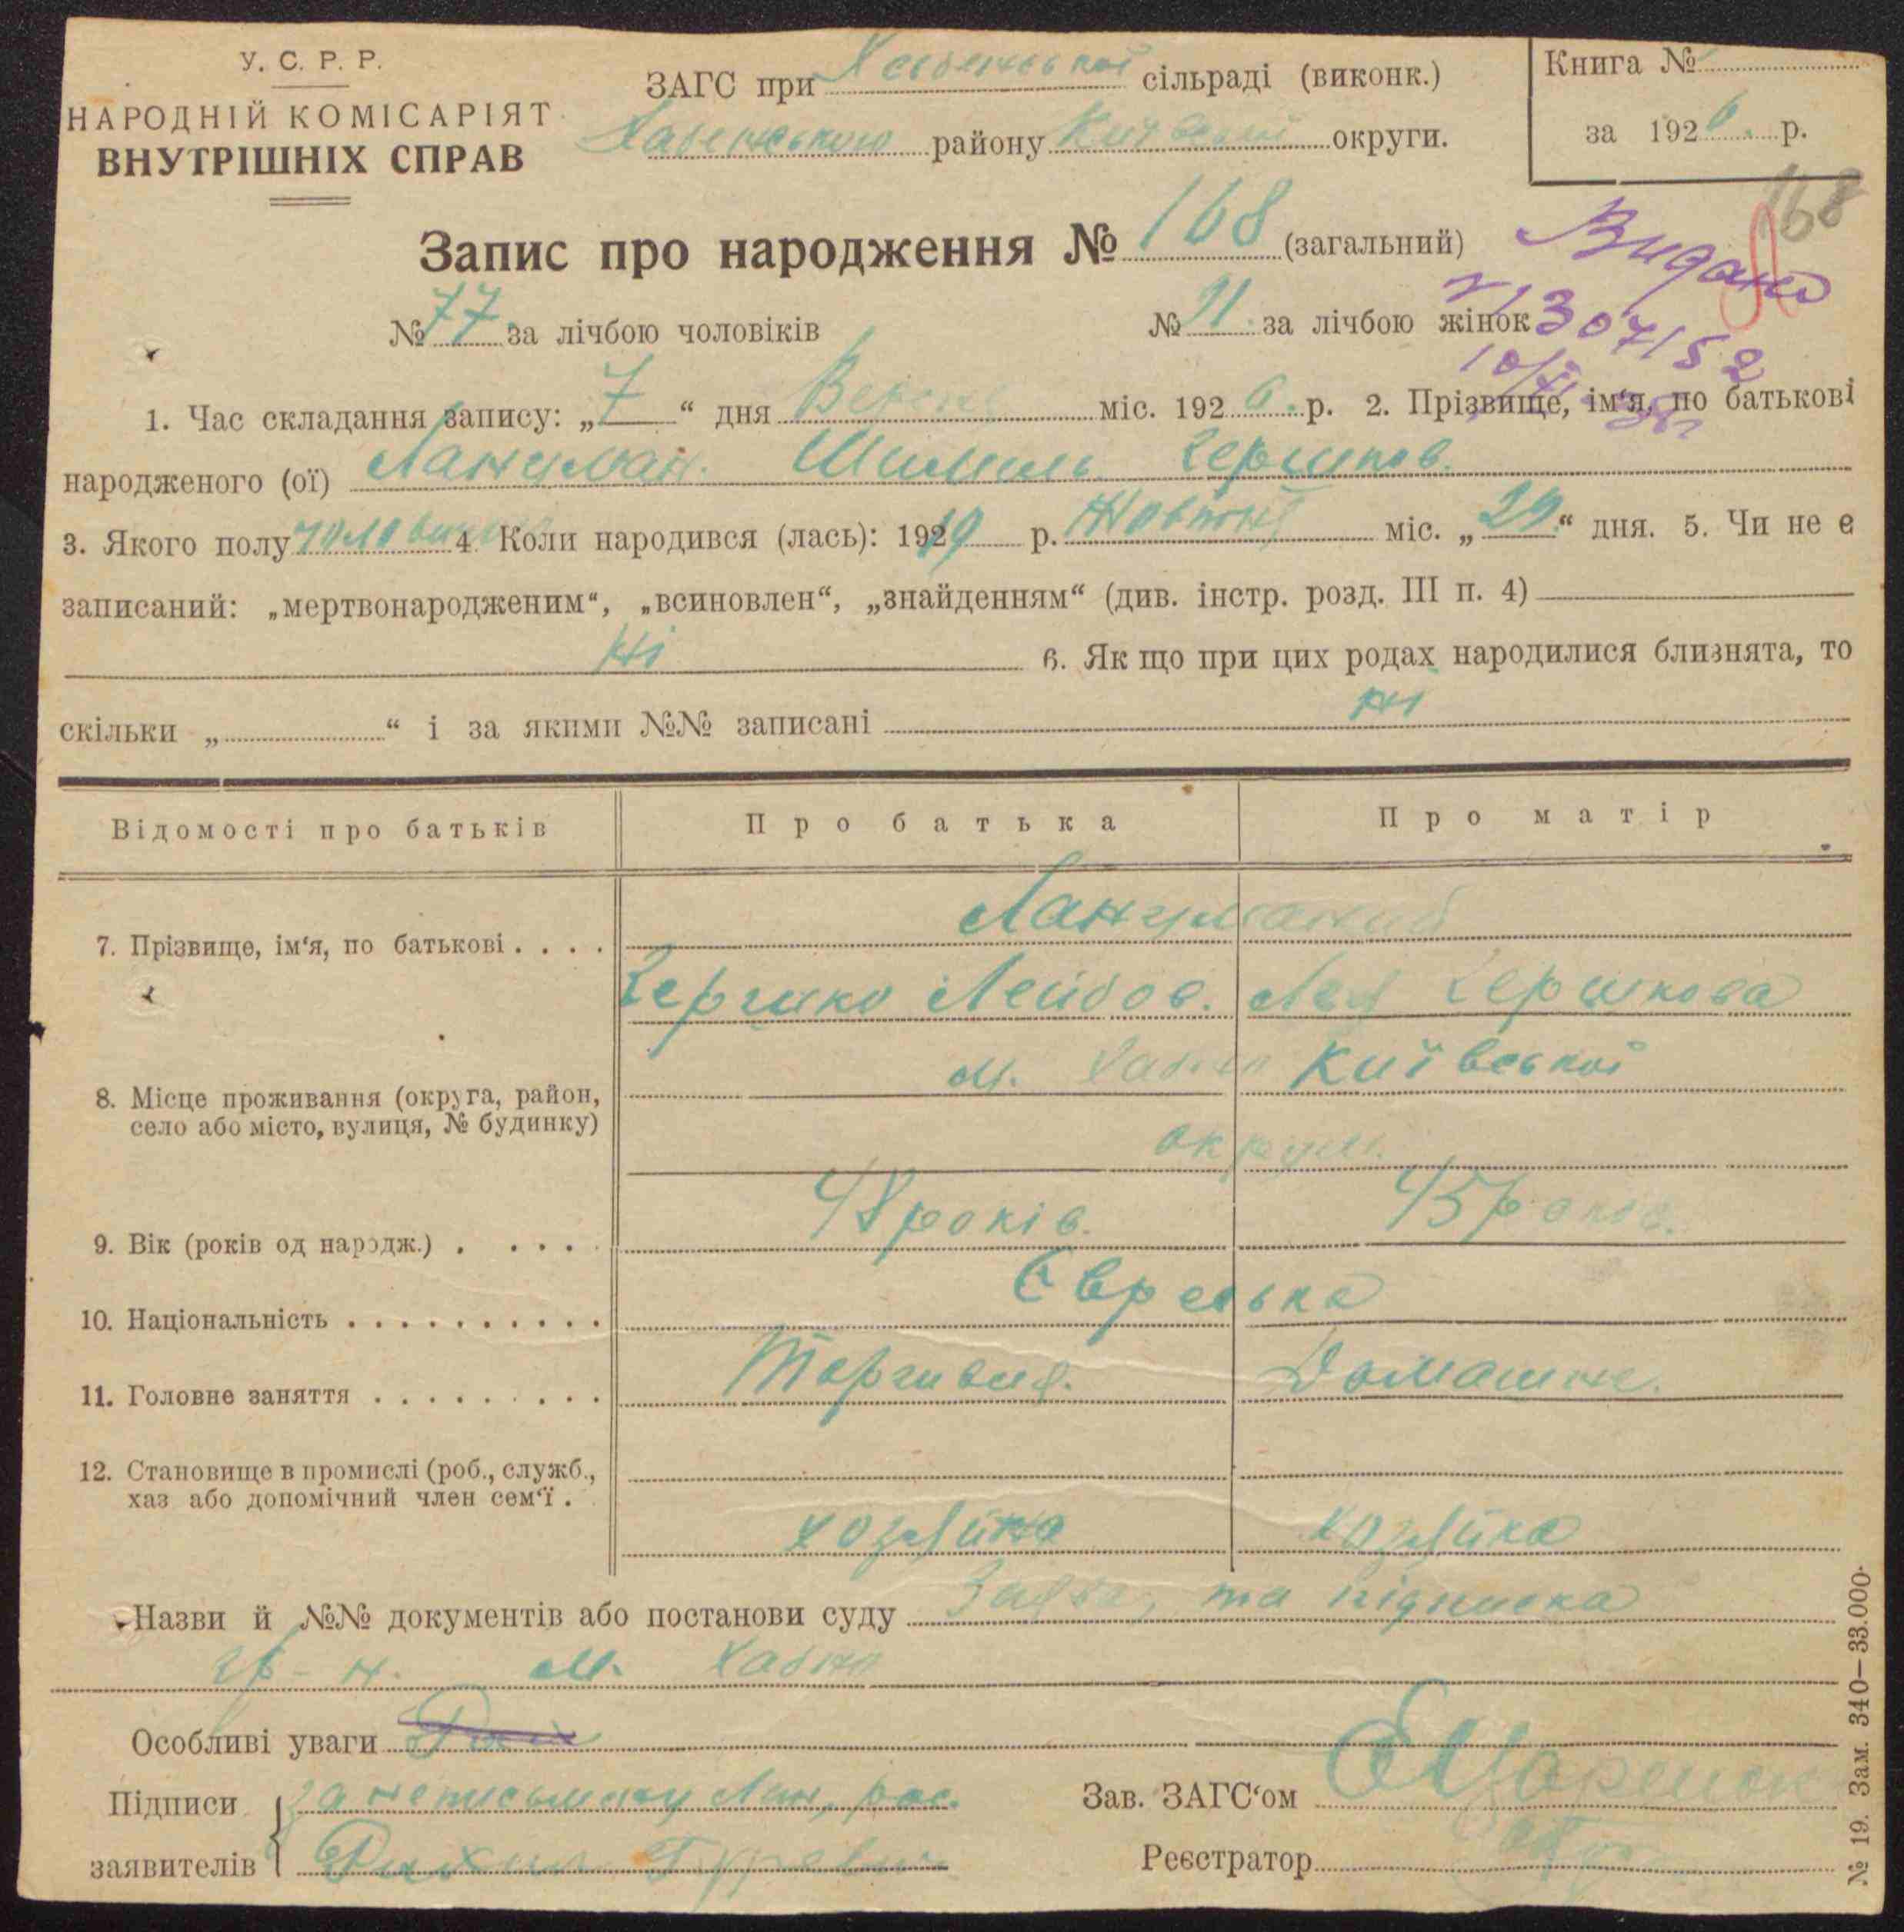 У. С. Р. Р.
НАРОДНІЙ КОМІСАРІЯТ
ВНУТРІШНІХ СПРАВ
ЗАГС при сільраді (виконк.)
району Київської округи.
Книга №
за 1926. р.
168
Запис про народження № 168 (загальний)
Видано
№ 77 за лічбою чоловіків
№ 91 за лічбою жінок
307152
1. Час складання запису: „7“ дня міс. 1926. р. 2. Прізвище, ім'я, по батькові
народженого (ої) Лангман. Шмиль Гершков.
3. Якого полу 4. Коли народився (лась): 1919 р. Жовтня міс. „29“ дня. 5. Чи не є
записаний: „мертвонародженим“, „всиновлен“, „знайденням“ (див. інстр. розд. III п. 4)
Ні
6. Як що при цих родах народилися близнята, то
скільки „ “ і за якими №№ записані Ні
Відомості про батьків
Про батька
Про матір
7. Прізвище, ім'я, по батькові . . . .
Гершко Лейбов. Лея Гершкова
8. Місце проживання (округа, район,
село або місто, вулиця, № будинку)
м. Хабно Київської
округи.
9. Вік (років од народж.) . . . . .
48 років. 45 років.
10. Національність . . . . . . . . . .
Єврейська
11. Головне заняття . . . . . . . . .
Торгивця. Домашнє.
12. Становище в промислі (роб., служб.,
хаз або допомічний член сем'ї .
хозяйка
Назви й №№ документів або постанови суду Заява, та підписка
гр-н. м. Хабно
Особливі уваги
Підписи
заявителів
за неписьменну
Рахиль Гуревич
Зав. ЗАГС'ом
Реєстратор
№ 19. Зам. 340—33.000·